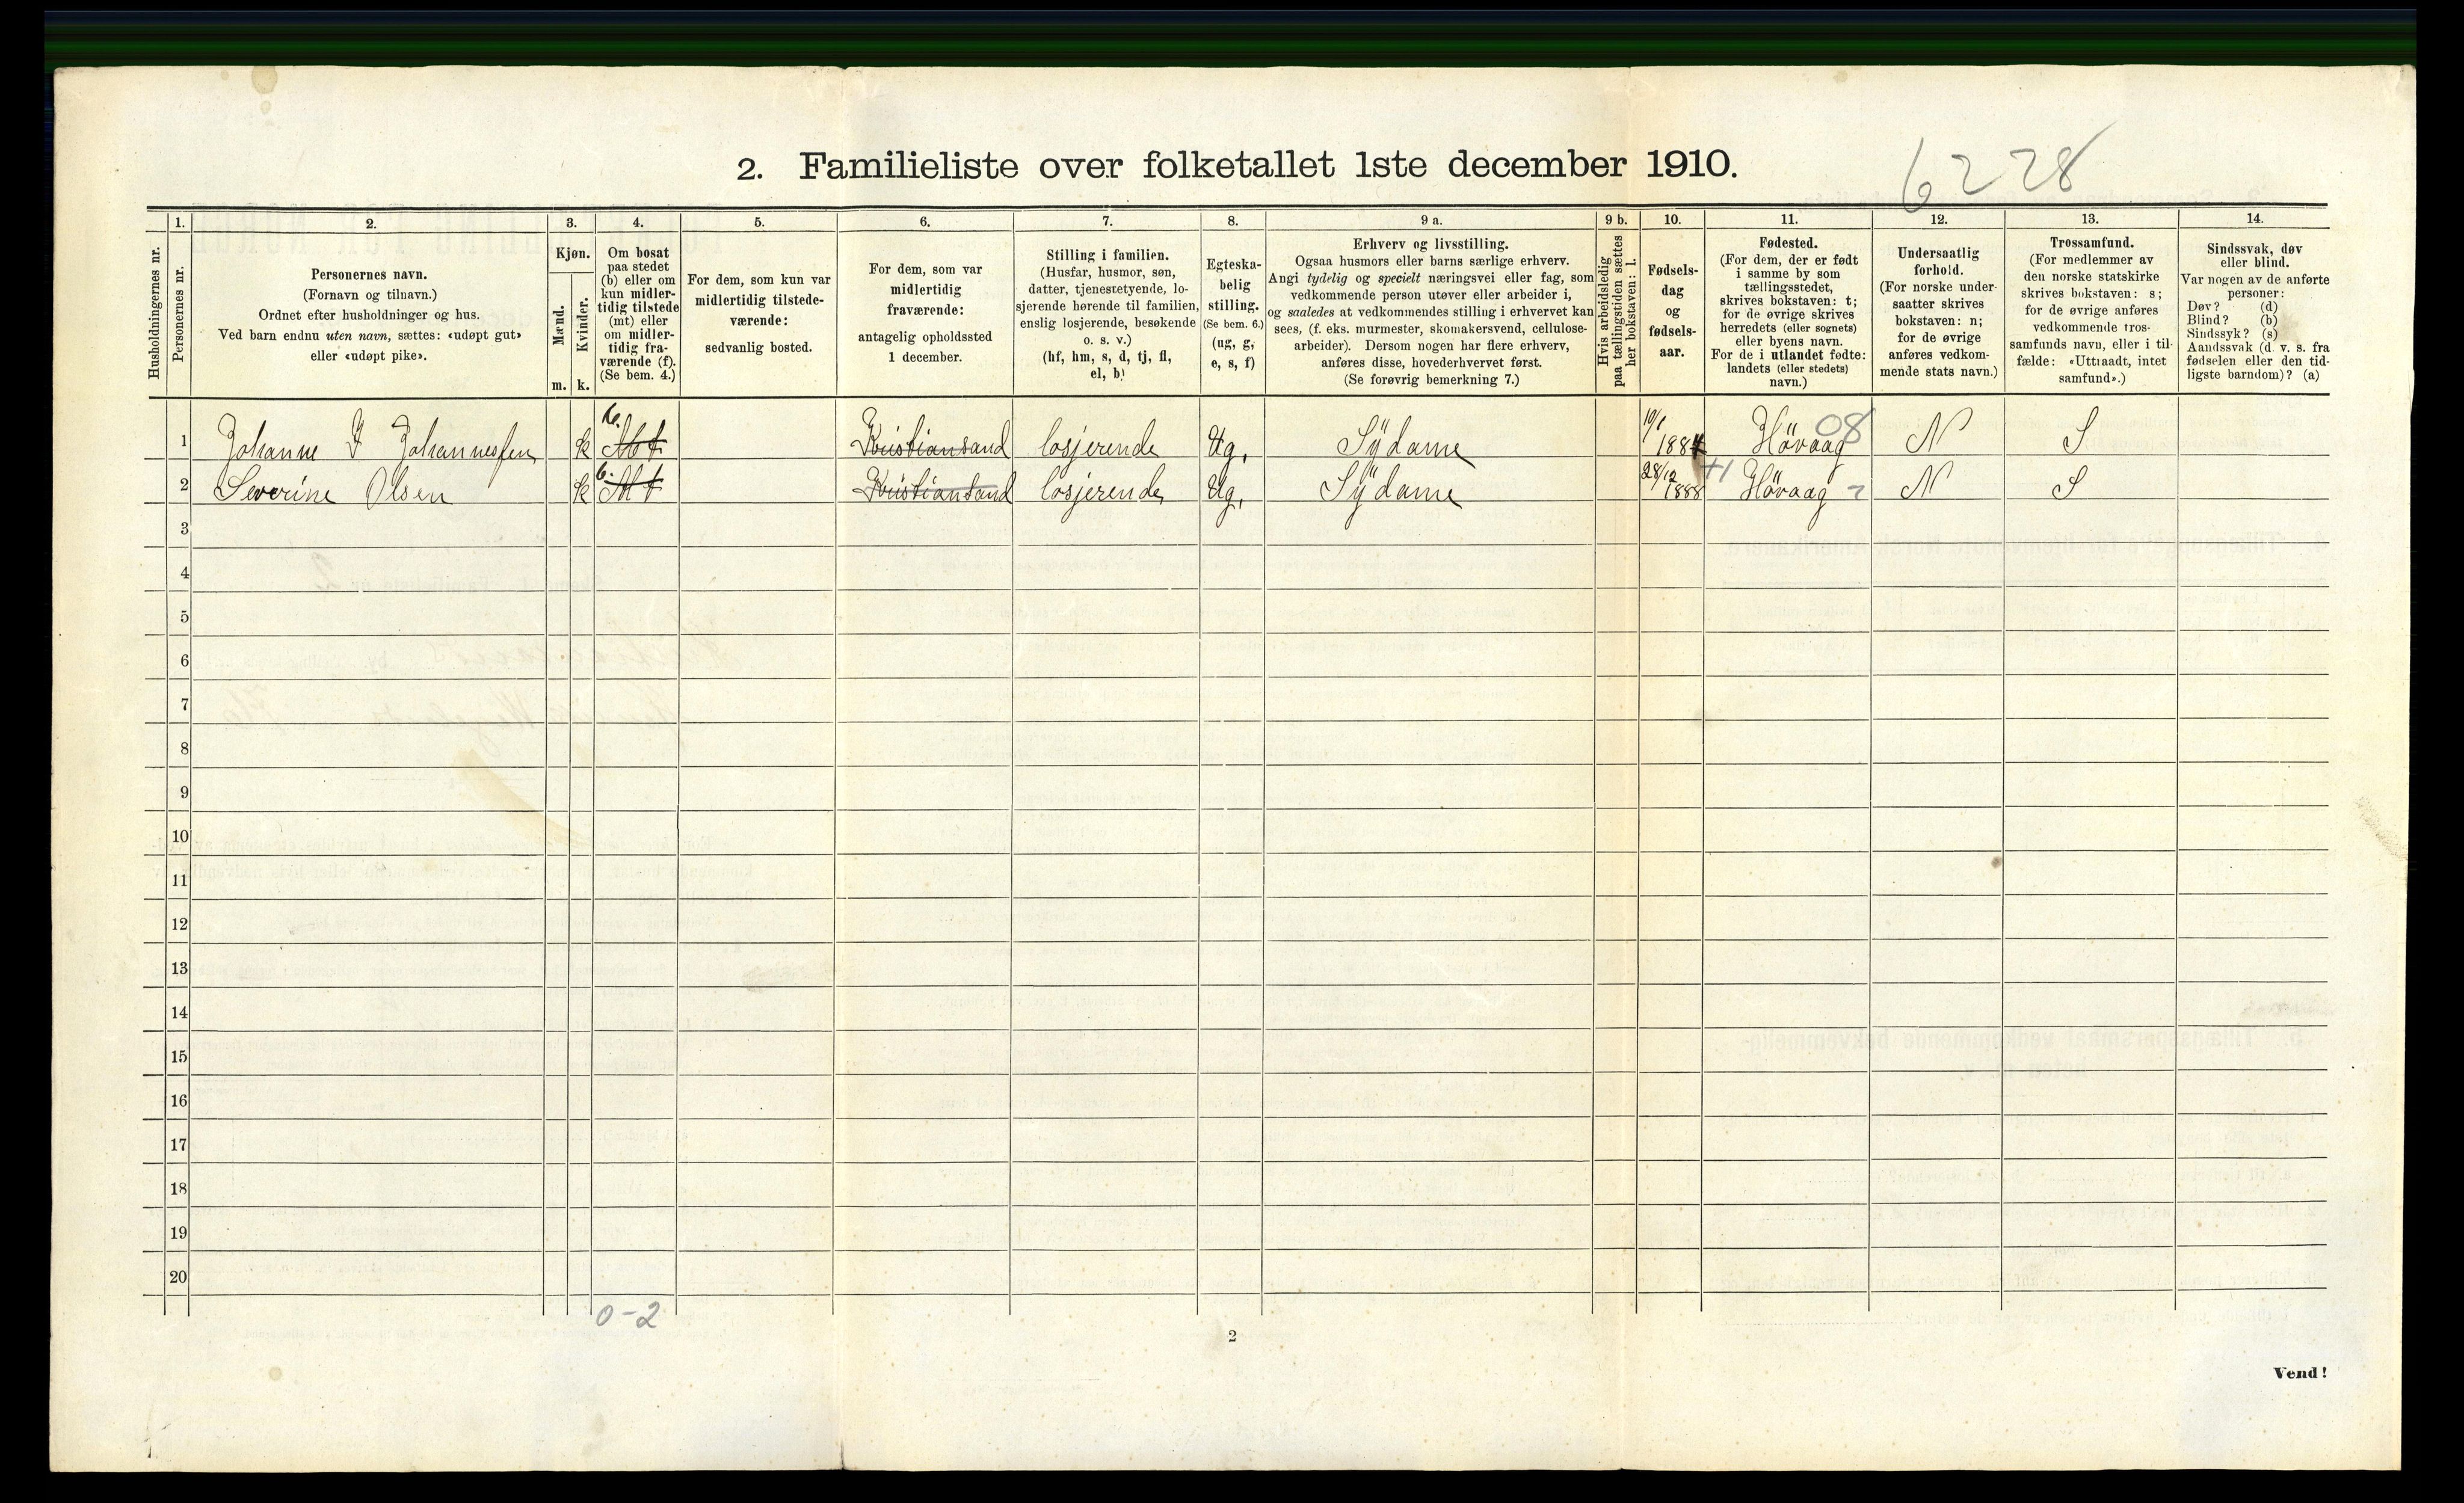 2. Familieliste over folketallet 1ste december 1910.
6228
1. 2. 3. 4. 5. 6. 7. 8. 9 a. 9 b. 10. 11. 12. 13. 14.
Husholdningernes nr.
Personernes nr.
Personernes navn.
(Fornavn og tilnavn.)
Ordnet efter husholdninger og hus.
Ved barn endnu uten navn, sættes: «udøpt gut»
eller «udøpt pike».
Kjøn.
Mænd.
Kvinder.
m. k.
Om bosat
paa stedet
(b) eller om
kun midler-
tidig tilstede
(mt) eller
om midler-
tidig fra-
værende (f).
(Se bem. 4.)
For dem, som kun var
midlertidig tilstede-
værende:
sedvanlig bosted.
For dem, som var
midlertidig
fraværende:
antagelig opholdssted
1 december.
Stilling i familien.
(Husfar, husmor, søn,
datter, tjenestetyende, lo-
sjerende hørende til familien,
enslig losjerende, besøkende
o. s. v.)
(hf, hm, s, d, tj, fl,
el, b)
Egteska-
belig
stilling.
(Se bem. 6.)
(ug, g,
e, s, f)
Erhverv og livsstilling.
Ogsaa husmors eller barns særlige erhverv.
Angi tydelig og specielt næringsvei eller fag, som
vedkommende person utøver eller arbeider i,
og saaledes at vedkommendes stilling i erhvervet kan
sees, (f. eks. murmester, skomakersvend, cellulose-
arbeider). Dersom nogen har flere erhverv,
anføres disse, hovederhvervet først.
(Se forøvrig bemerkning 7.)
Hvis arbeidsledig
paa tællingstiden sættes
her bokstaven: l.
Fødsels-
dag
og
fødsels-
aar.
Fødested.
(For dem, der er født
i samme by som
tællingsstedet,
skrives bokstaven: t;
for de øvrige skrives
herredets (eller sognets)
eller byens navn.
For de i utlandet fødte:
landets (eller stedets)
navn.)
Undersaatlig
forhold.
(For norske under-
saatter skrives
bokstaven: n;
for de øvrige
anføres vedkom-
mende stats navn.)
Trossamfund.
(For medlemmer av
den norske statskirke
skrives bokstaven: s;
for de øvrige anføres
vedkommende tros-
samfunds navn, eller i til-
fælde: «Uttraadt, intet
samfund».)
Sindssvak, døv
eller blind.
Var nogen av de anførte
personer:
Døv? (d)
Blind? (b)
Sindssyk? (s)
Aandssvak (d. v. s. fra
fødselen eller den tid-
ligste barndom)? (a)
1 Johanne J Johannessen k b. Mt Kristiansand losjerende Ug. Sÿdame 10/1 1884 Hövaag 08 N S
2 Severine Olsen k b. Mt Kristiansand losjerende Ug. Sÿdame 28/12 1888 +1 Hövaag N S
3
4
5
6
7
8
9
10
11
12
13
14
15
16
17
18
19
20
0-2
2
Vend!